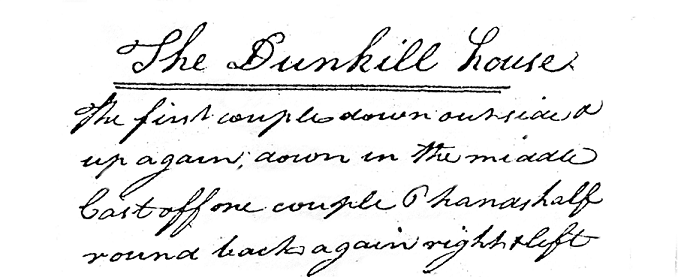 The Dunkill house.
The first couple down outside &
up again; down in the middle
Cast off one couple 6 hands half
round back again right & left